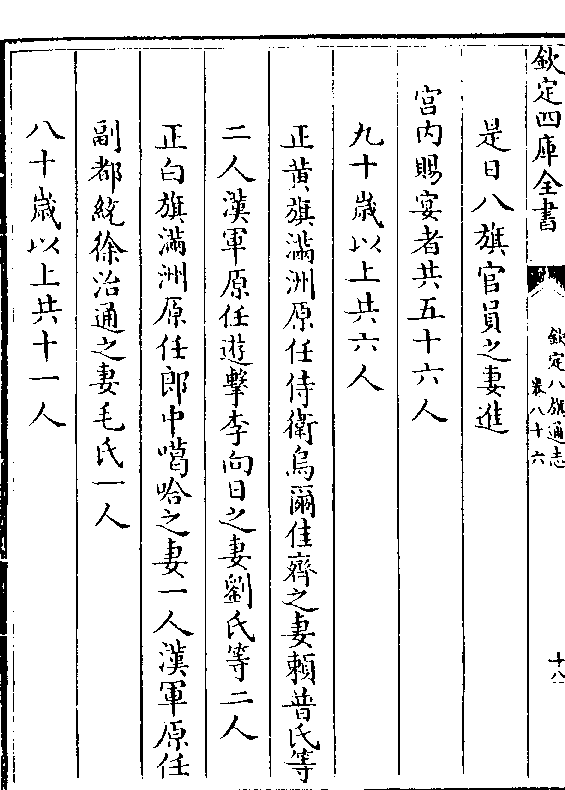 欽定四庫全書
欽定八旗通志
卷八十六
十八
是日八旗官員之妻進
宮内賜宴者共五十六人
九十歲以上共六人
正黄旗滿洲原任侍衛烏爾佳齊之妻賴普氏等
二人漢軍原任遊擊李向日之妻劉氏等二人
正白旗滿洲原任郎中噶哈之妻一人漢軍原任
副都統徐治通之妻毛氏一人
八十歲以上共十一人